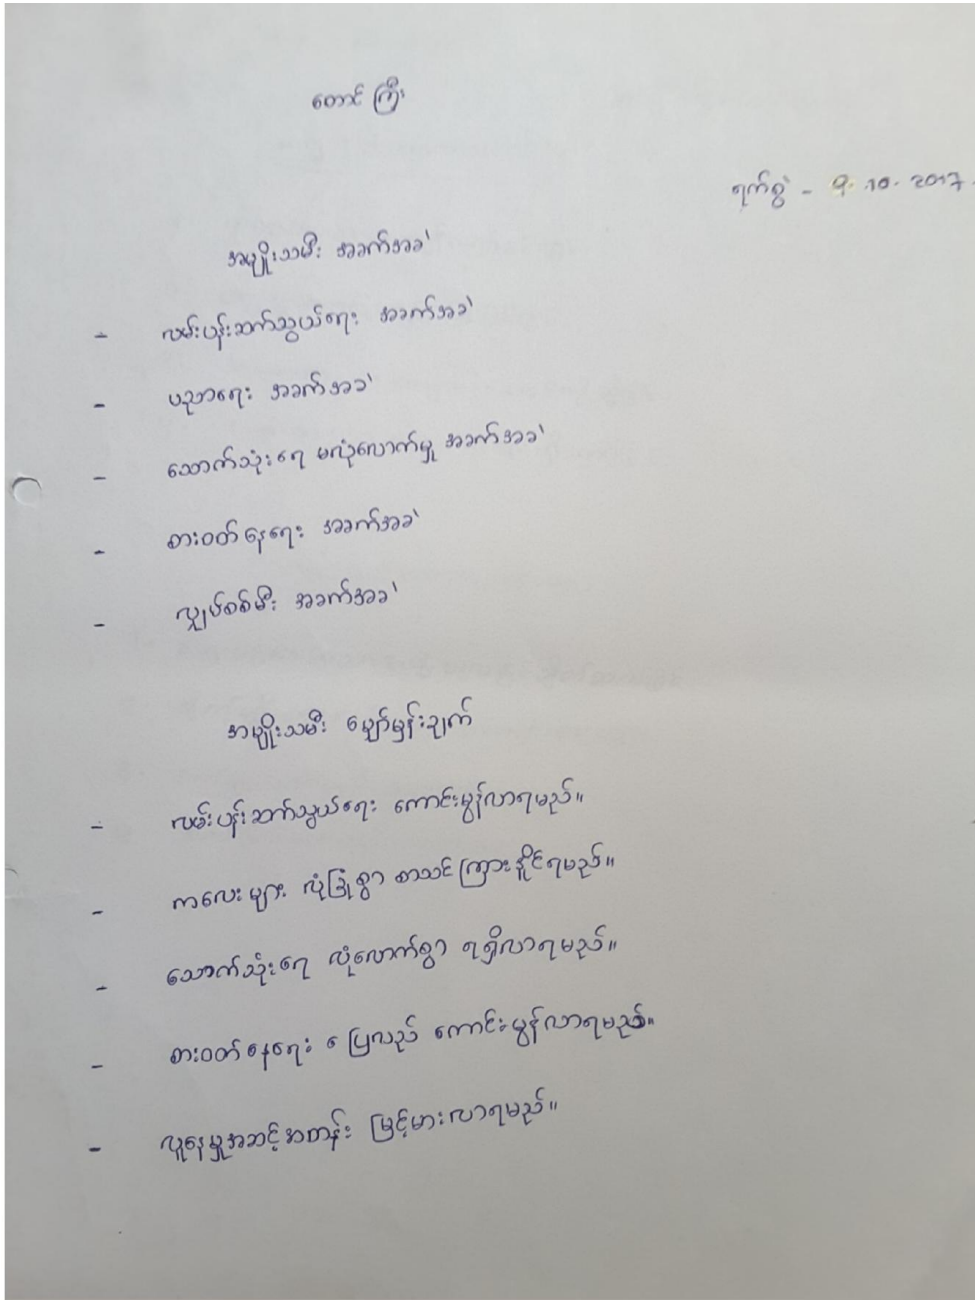 တောင်ကြီး
ရက်စွဲ - 9.10.2017.
အမျိုးသမီး အခက်အခဲ
- လမ်းပန်းဆက်သွယ်ရေး အခက်အခဲ
- ပညာရေး အခက်အခဲ
- သောက်သုံးရေ မလုံလောက်မှု အခက်အခဲ
- စားဝတ်နေရေး အခက်အခဲ
- လျှပ်စစ်မီး အခက်အခဲ
အမျိုးသမီး မျှော်မှန်းချက်
- လမ်းပန်းဆက်သွယ်ရေး ကောင်းမွန်လာရမည်။
- ကလေးများ လုံခြုံစွာ စာသင်ကြားနိုင်ရမည်။
- သောက်သုံးရေ လုံလောက်စွာ ရရှိလာရမည်။
- စားဝတ်နေရေး ပြေလည် ကောင်းမွန်လာရမည်။
- လူနေမှုအဆင့်အတန်း မြင့်မားလာရမည်။